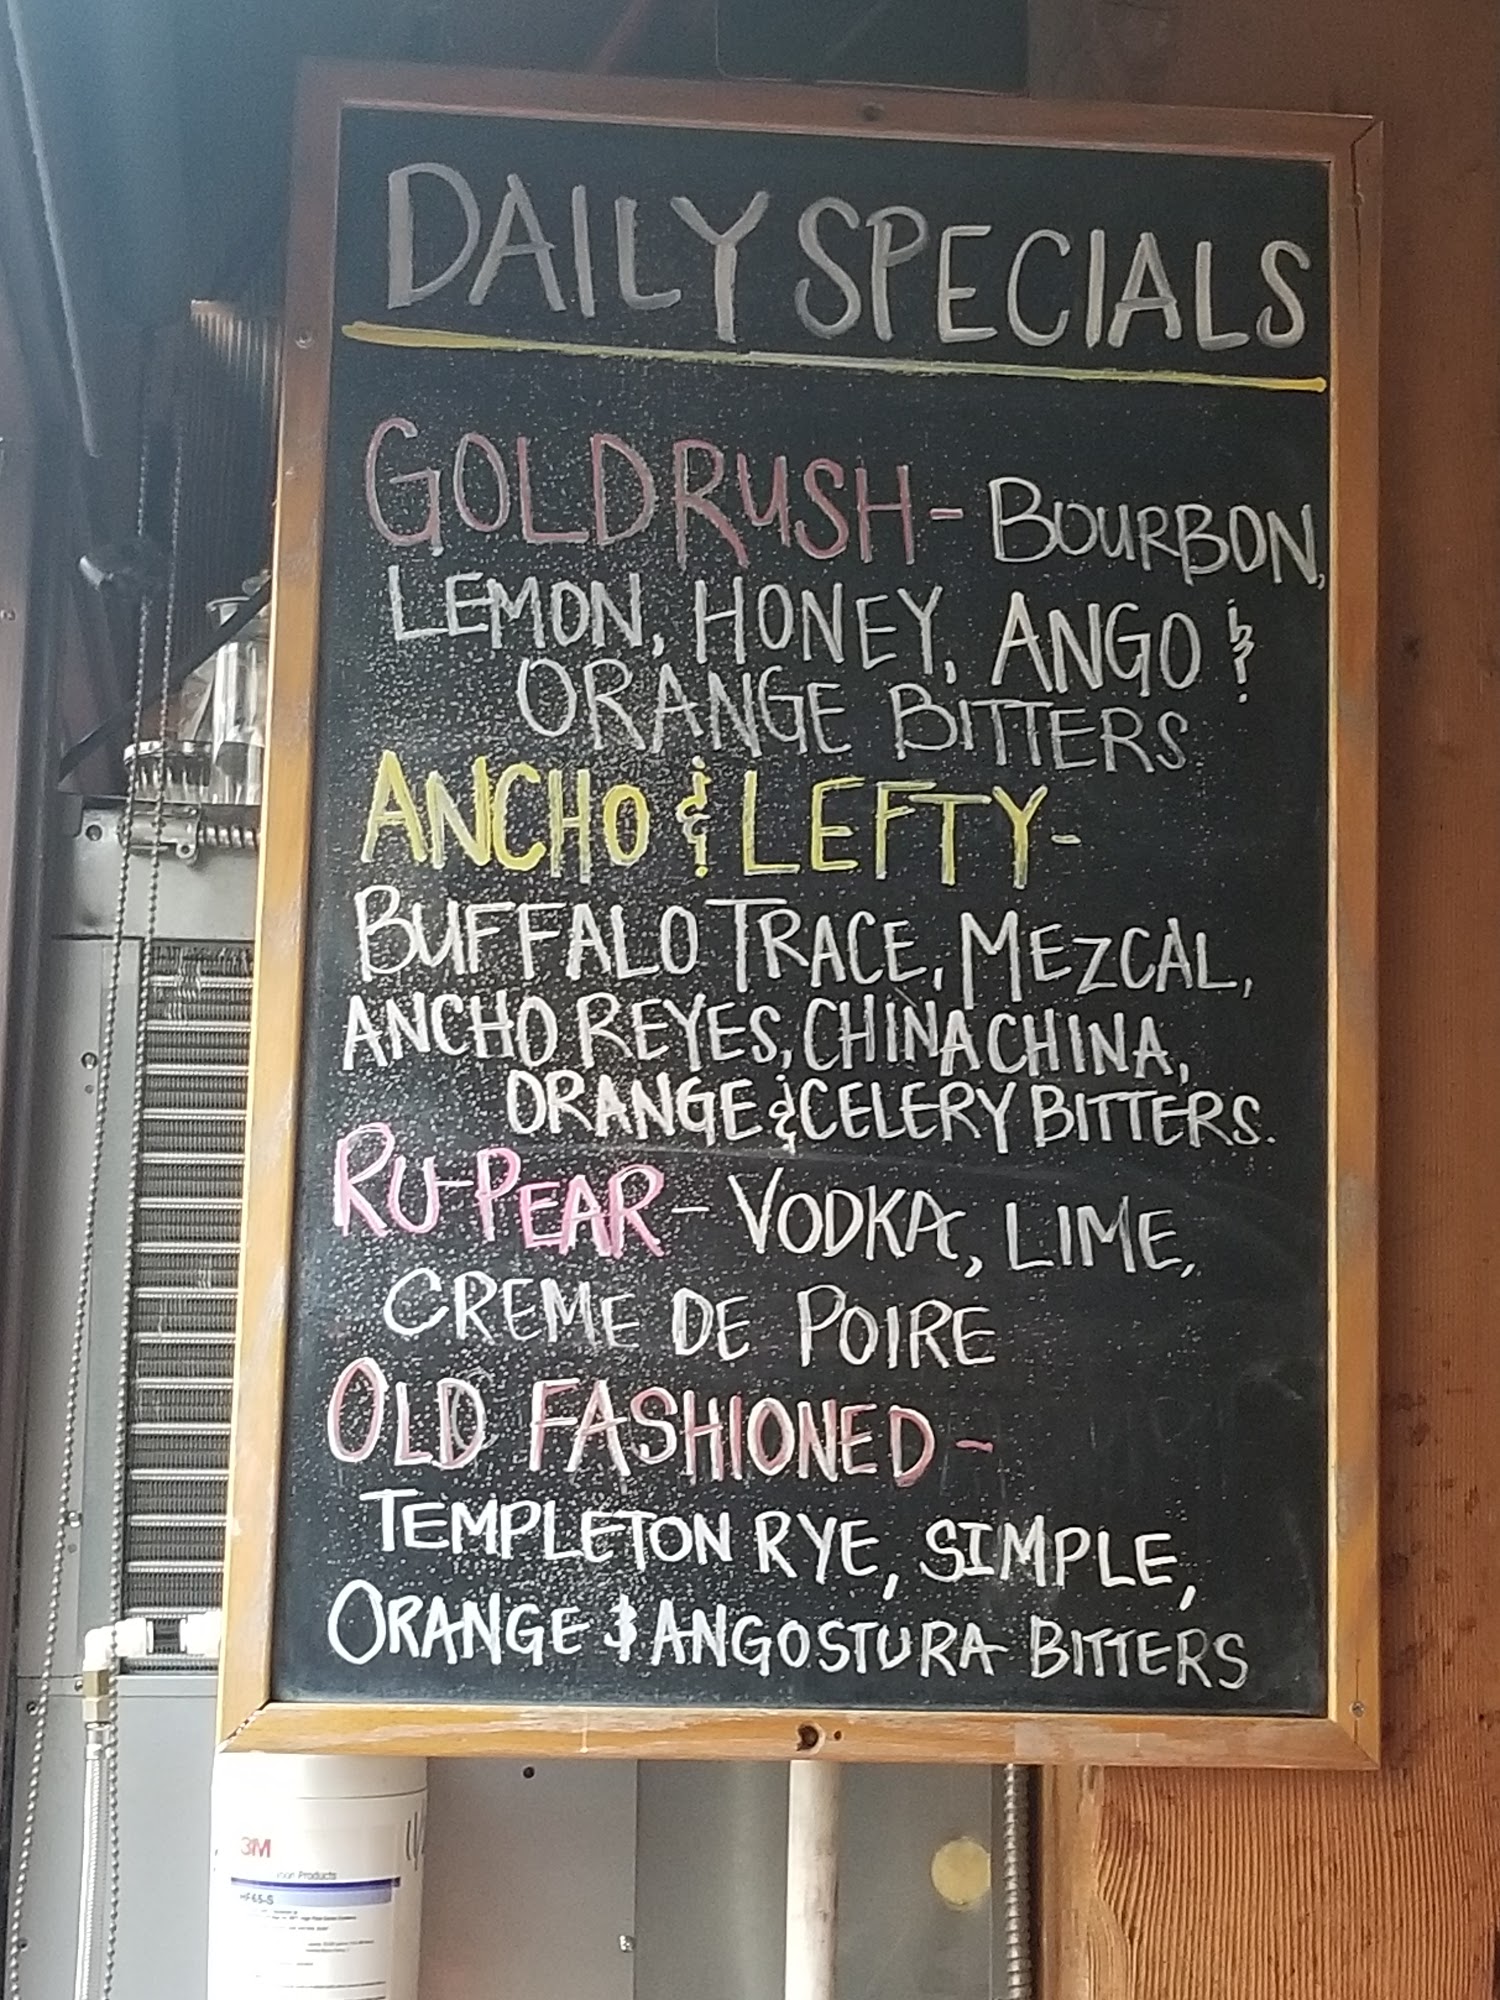 DAILY SPECIALS
GOLD RUSH - BOURBON,
LEMON, HONEY, ANGO &
ORANGE BITTERS
ANCHO & LEFTY -
BUFFALO TRACE, MEZCAL,
ANCHO REYES, CHINA CHINA,
ORANGE & CELERY BITTERS.
RU-PEAR - VODKA, LIME,
CREME DE POIRE
OLD FASHIONED -
TEMPLETON RYE, SIMPLE,
ORANGE & ANGOSTURA BITTERS
3M
Products
HF65-S